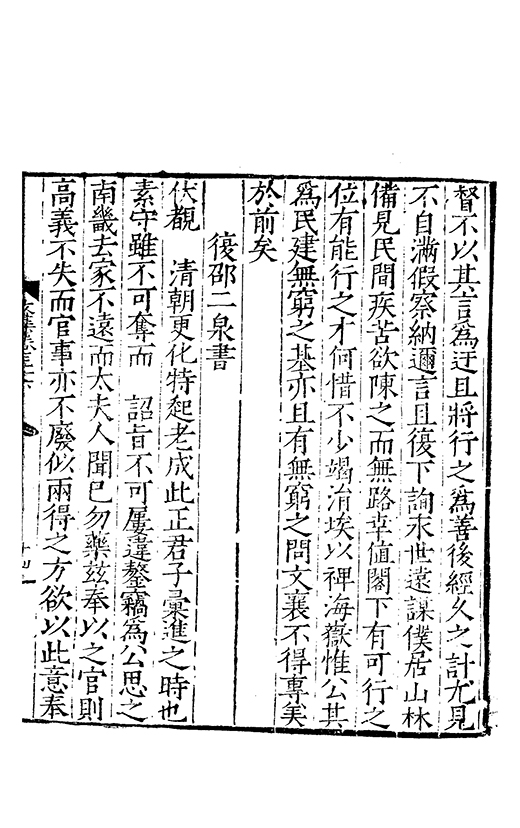 督不以其言爲迂且將行之爲善後經久之計尤見
不自滿假察納邇言且復下詢末世遠謀僕居山林
備見民間疾苦欲陳之而無路幸值閣下有可行之
位有能行之才何惜不少竭涓埃以裨海嶽惟公其
爲民建無窮之基亦且有無窮之問文襄不得專美
於前矣
復邵二泉書
伏觀　清朝更化特起老成此正君子彙進之時也
素守雖不可奪而　詔旨不可屢違鏊竊爲公思之
南畿去家不遠而太夫人聞已勿藥兹奉以之官則
高義不失而官事亦不廢似兩得之方欲以此意奉
十四